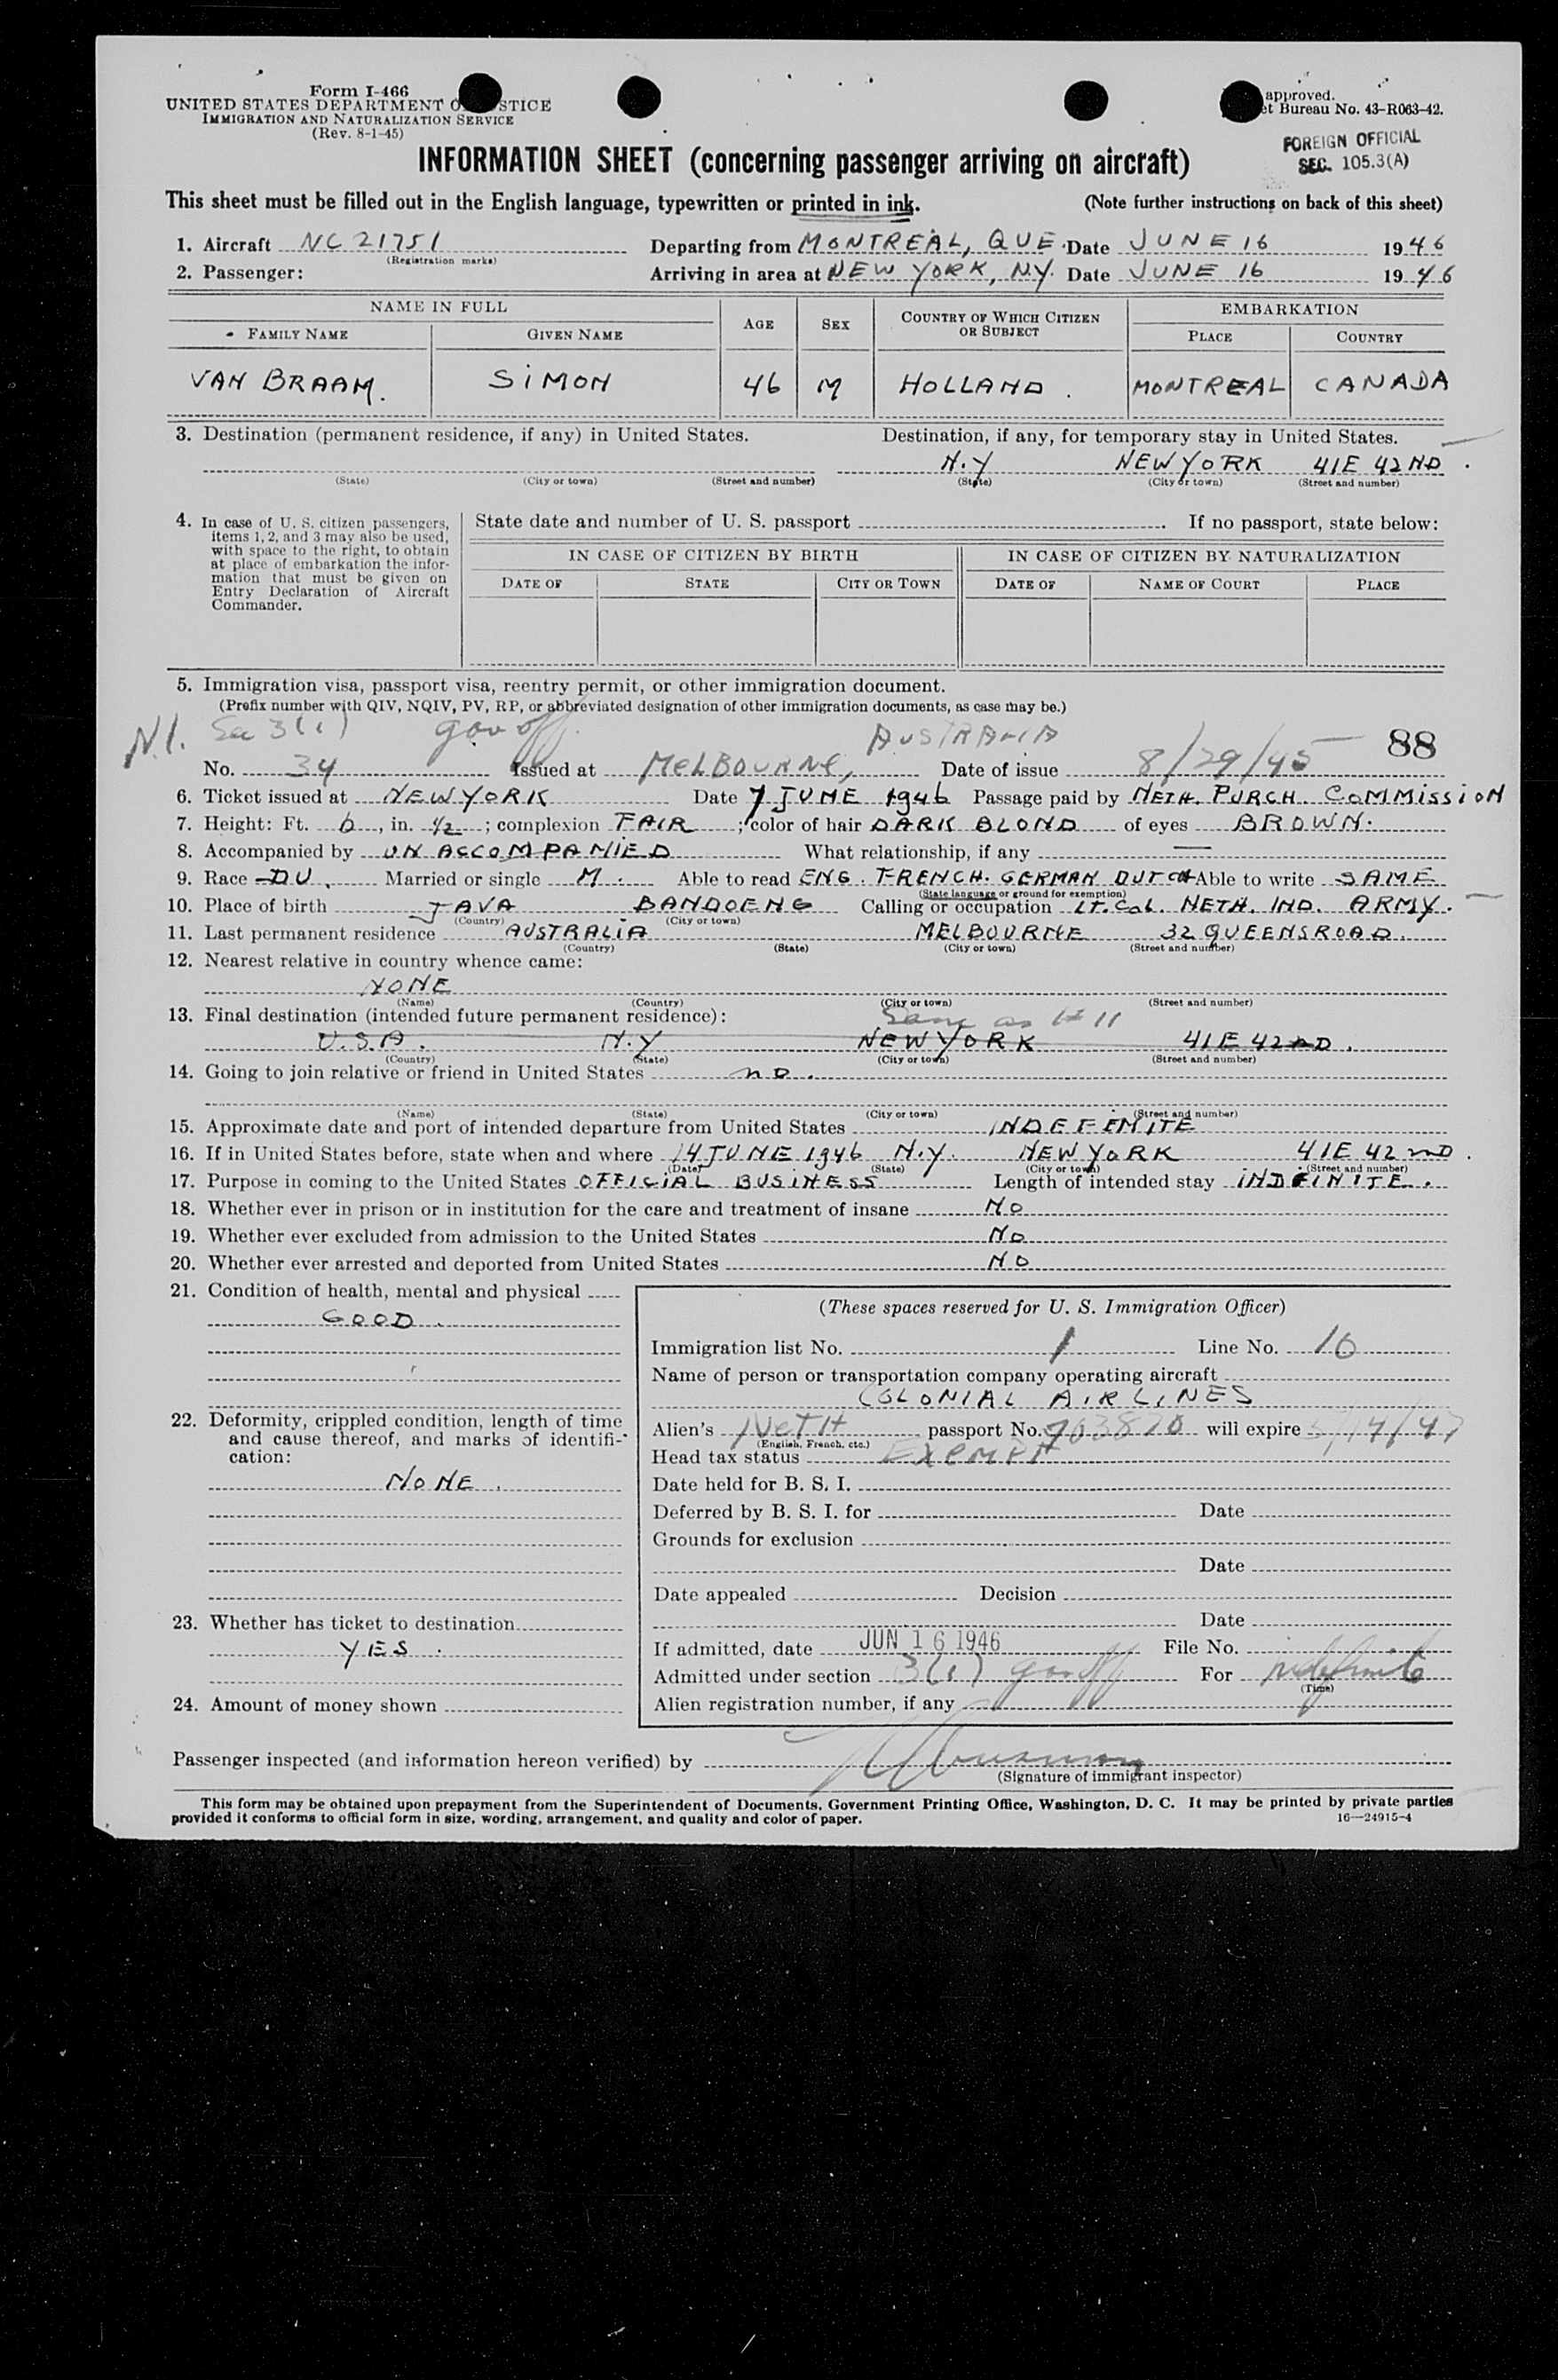 Form I-466
UNITED STATES DEPARTMENT O STICE
IMMIGRATION AND NATURALIZATION SERVICE
(Rev. 8-1-45)
approved.
et Bureau No. 43-R063-42.
FOREIGN OFFICIAL
SEC. 105.3(A)
INFORMATION SHEET (concerning passenger arriving on aircraft)
This sheet must be filled out in the English language, typewritten or printed in ink. (Note further instructions on back of this sheet)
1. Aircraft NC 21751 Departing from MONTREAL, QUE. Date JUNE 16 1946
(Registration marks)
2. Passenger: Arriving in area at NEW YORK, N.Y. Date JUNE 16 1946
NAME IN FULL AGE SEX COUNTRY OF WHICH CITIZEN OR SUBJECT EMBARKATION
FAMILY NAME GIVEN NAME PLACE COUNTRY
VAN BRAAM. SIMON 46 M HOLLAND. MONTREAL CANADA
3. Destination (permanent residence, if any) in United States. Destination, if any, for temporary stay in United States.
N.Y NEW YORK 41E 42ND.
(State) (City or town) (Street and number) (State) (City or town) (Street and number)
4. In case of U. S. citizen passengers, items 1, 2, and 3 may also be used, with space to the right, to obtain at place of embarkation the information that must be given on Entry Declaration of Aircraft Commander.
State date and number of U. S. passport . If no passport, state below:
IN CASE OF CITIZEN BY BIRTH IN CASE OF CITIZEN BY NATURALIZATION
DATE OF STATE CITY OR TOWN DATE OF NAME OF COURT PLACE
5. Immigration visa, passport visa, reentry permit, or other immigration document.
(Prefix number with QIV, NQIV, PV, RP, or abbreviated designation of other immigration documents, as case may be.)
N.I. Sec 3(1) gov off. AUSTRALIA 88
No. 34 Issued at MELBOURNE, Date of issue 8/29/45
6. Ticket issued at NEW YORK Date 7 JUNE 1946 Passage paid by NETH. PURCH. COMMISSION
7. Height: Ft. 6, in. 1/2; complexion FAIR; color of hair DARK BLOND of eyes BROWN.
8. Accompanied by UNACCOMPANIED What relationship, if any —
9. Race DU. Married or single M. Able to read ENG. FRENCH. GERMAN DUTCH Able to write SAME
(State language or ground for exemption)
10. Place of birth JAVA BANDOENG Calling or occupation LT. COL. NETH. IND. ARMY.
(Country) (City or town)
11. Last permanent residence AUSTRALIA MELBOURNE 32 QUEENSROAD.
(Country) (State) (City or town) (Street and number)
12. Nearest relative in country whence came:
NONE
(Name) (Country) (City or town) (Street and number)
13. Final destination (intended future permanent residence): Same as # 11
U.S.A. N.Y NEW YORK 41E 42ND.
(Country) (State) (City or town) (Street and number)
14. Going to join relative or friend in United States no.
(Name) (State) (City or town) (Street and number)
15. Approximate date and port of intended departure from United States INDEFINITE
16. If in United States before, state when and where 14 JUNE 1946 N.Y. NEW YORK 41E 42ND.
(Date) (State) (City or town) (Street and number)
17. Purpose in coming to the United States OFFICIAL BUSINESS Length of intended stay INDEFINITE.
18. Whether ever in prison or in institution for the care and treatment of insane NO
19. Whether ever excluded from admission to the United States NO
20. Whether ever arrested and deported from United States NO
21. Condition of health, mental and physical
GOOD.
22. Deformity, crippled condition, length of time and cause thereof, and marks of identification:
NONE.
23. Whether has ticket to destination
YES.
24. Amount of money shown
(These spaces reserved for U. S. Immigration Officer)
Immigration list No. 1 Line No. 10
Name of person or transportation company operating aircraft
COLONIAL AIRLINES
Alien's NETH passport No. 703870 will expire /14/47
(English, French, etc.)
Head tax status EXEMPT
Date held for B. S. I.
Deferred by B. S. I. for Date
Grounds for exclusion
Date
Date appealed Decision
Date
If admitted, date JUN 16 1946 File No.
Admitted under section 3(1) gov off For indefinite
(Time)
Alien registration number, if any
Passenger inspected (and information hereon verified) by
(Signature of immigrant inspector)
This form may be obtained upon prepayment from the Superintendent of Documents, Government Printing Office, Washington, D. C. It may be printed by private parties
provided it conforms to official form in size, wording, arrangement, and quality and color of paper. 16—24915-4